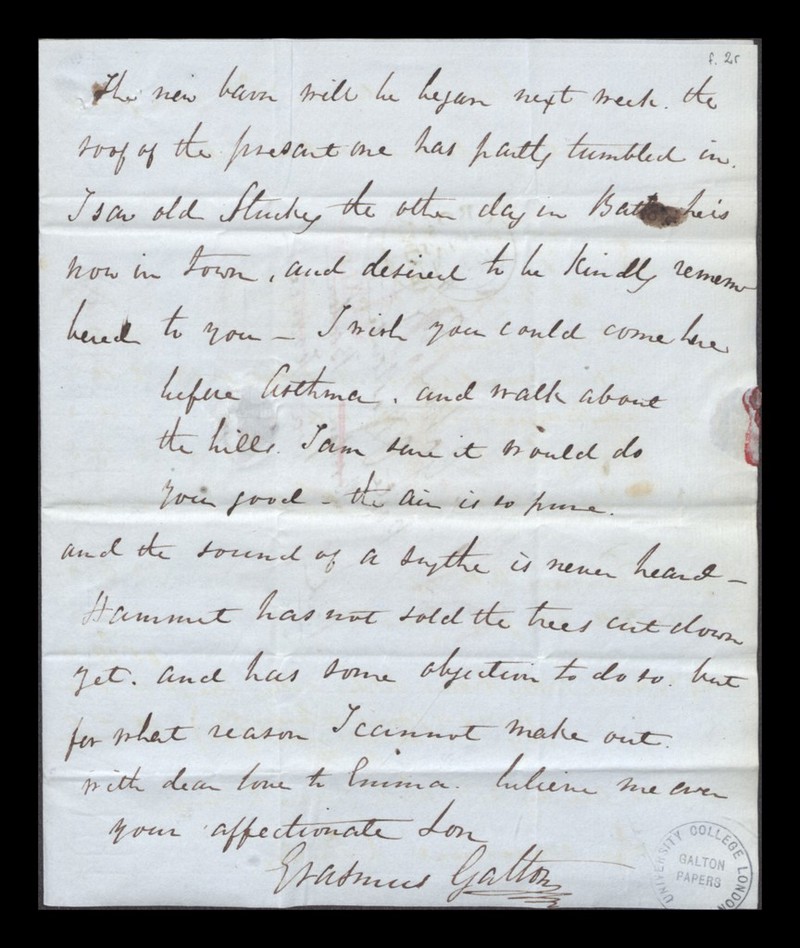 f. 2r
The new barn will be began next week. the
roof of the present one has partly tumbled in.
I saw old Stuckey the other day in Bath he is
now in town, and desired to be kindly remem
bered to you – I wish you could come here
before Asthma. and walk about
the hills. I am sure it would do
you good – the air is so pure.
and the sound of a sythe is never heard –
Hammet has not sold the trees cut down
yet. and has some objection to do so. but
for what reason I cannot make out.
with dear love to Emma. believe me ever
your affectionate Son
Erasmus Galton
UNIVERSITY COLLEGE LONDON
GALTON
PAPERS